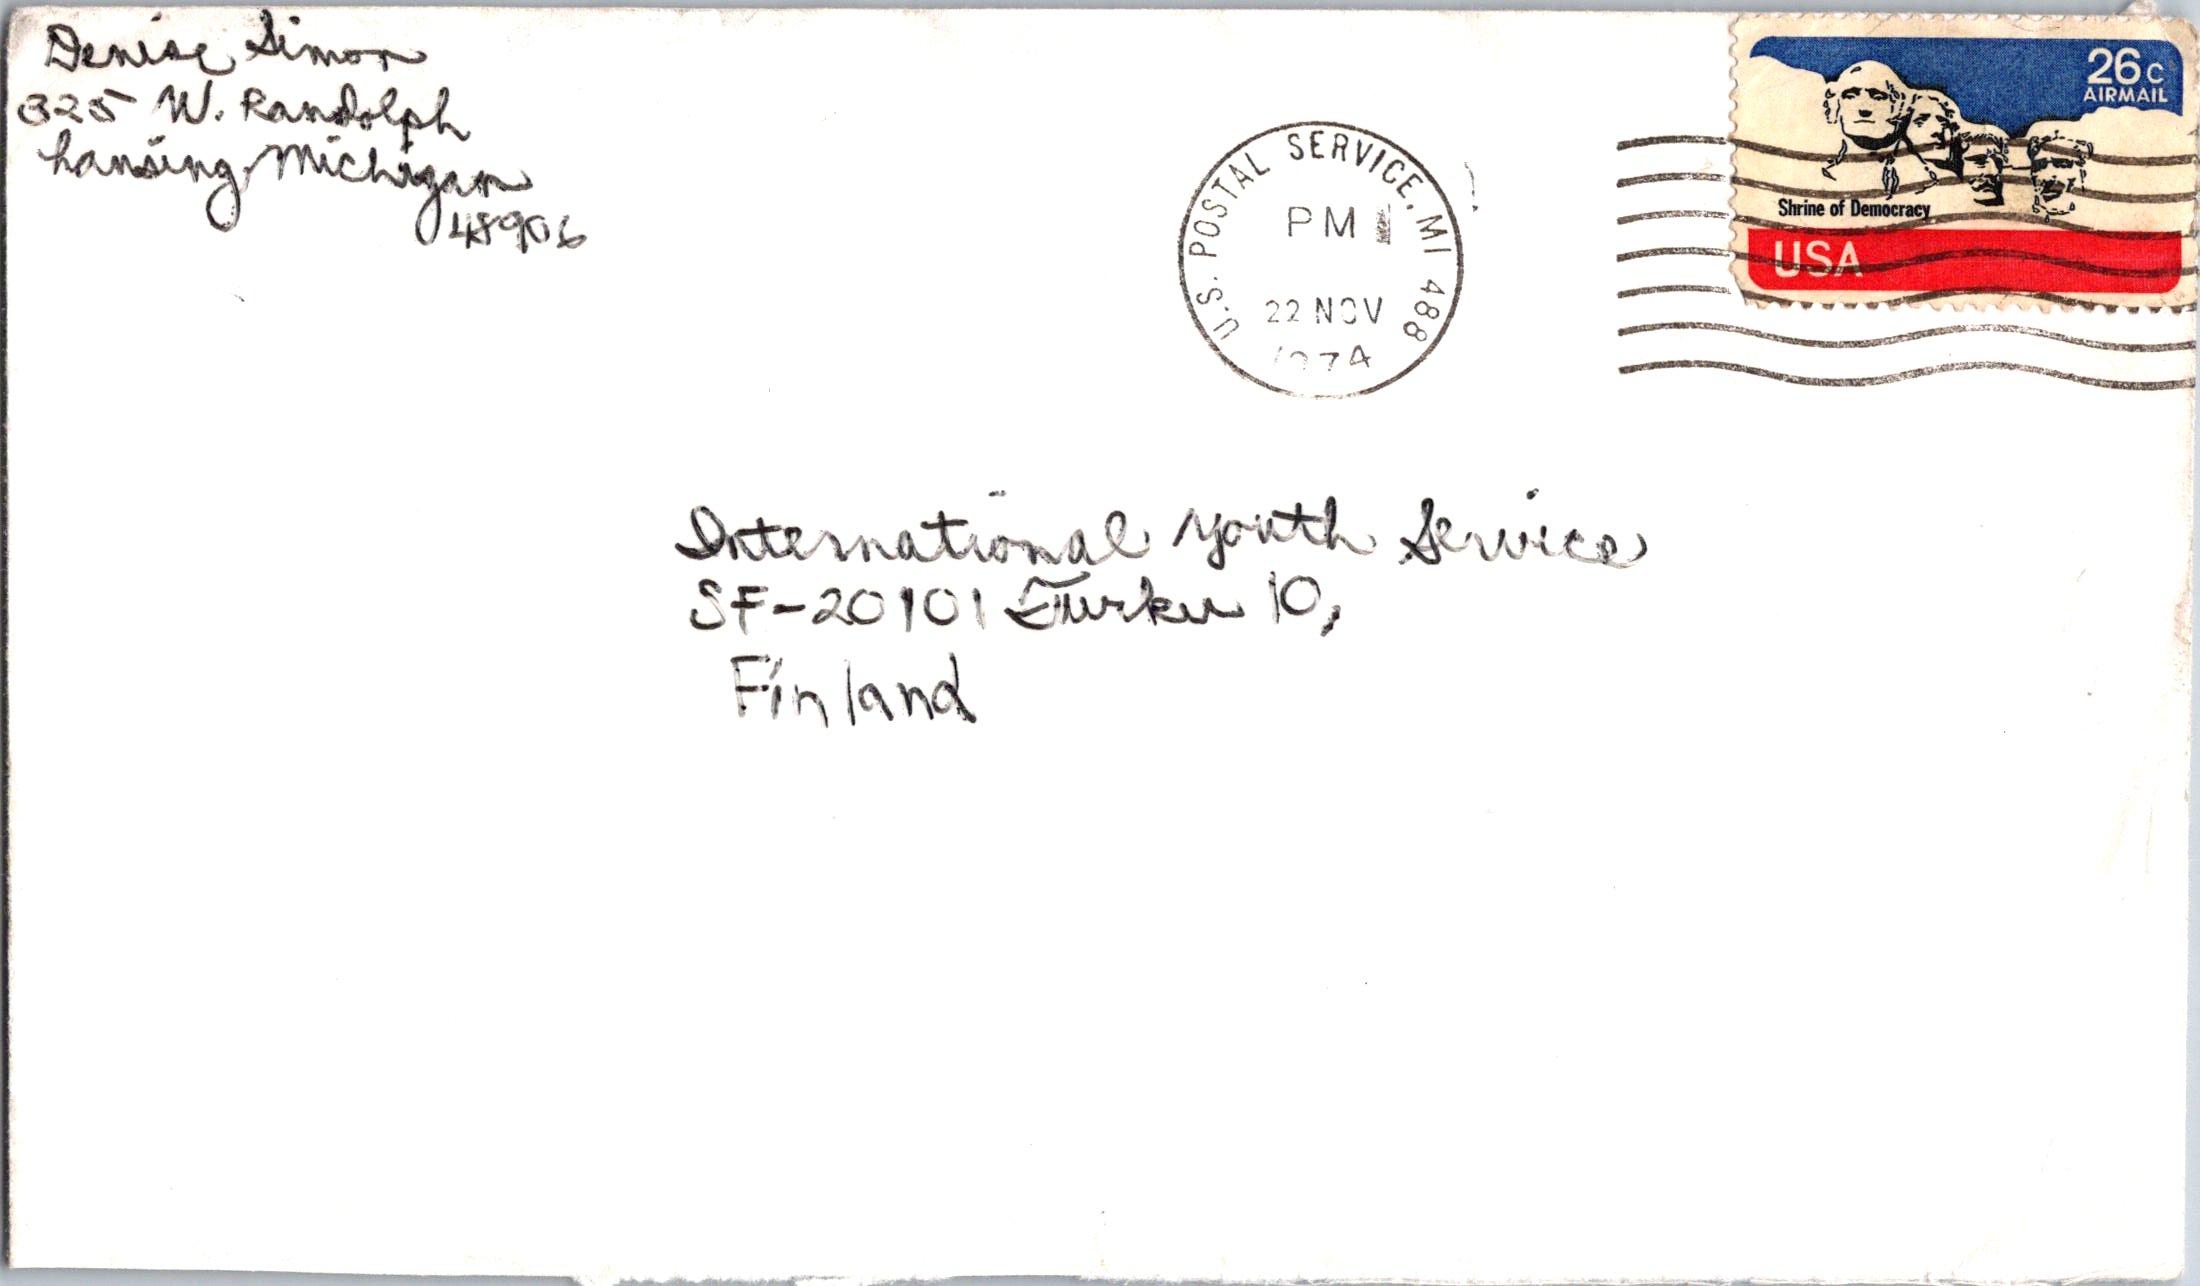 Denise Simon
325 W. Randolph
Lansing, Michigan
48906
U.S. POSTAL SERVICE, MI 488
PM
22 NOV
1974
26c
AIRMAIL
Shrine of Democracy
USA
International Youth Service
SF-20101 Turku 10,
Finland